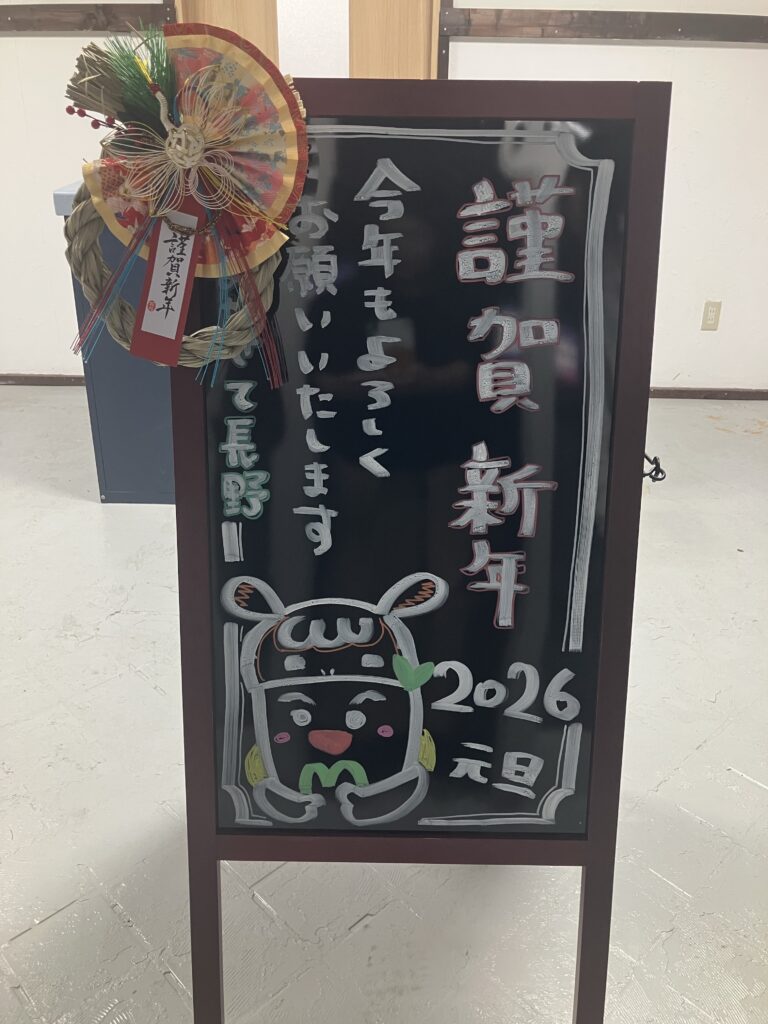 謹賀新年
今年もよろしく
お願いいたします
て長野
2026
元旦
謹賀新年